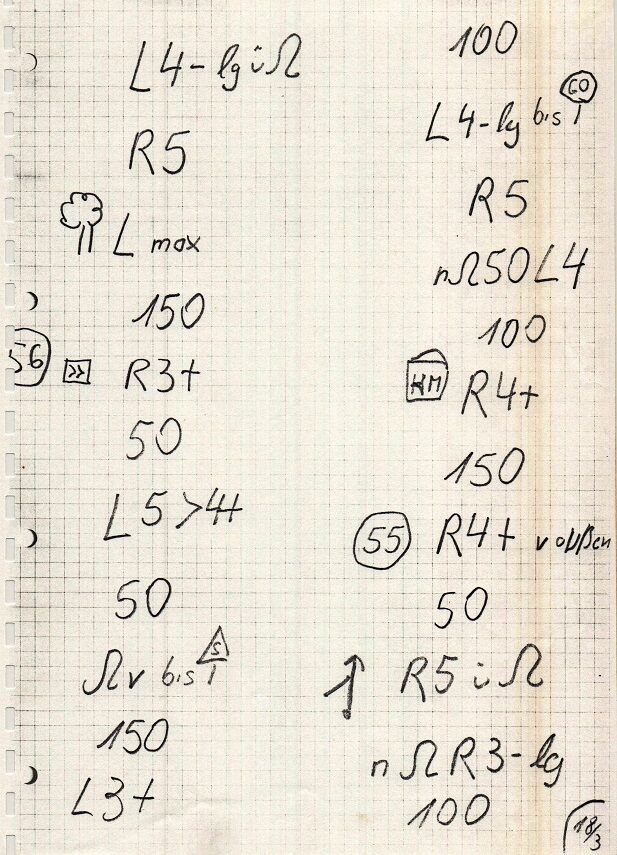 L4-lg ü Ω
R5
L max
150
56 >> R3+
50
L5>4+
50
Ωv bis S
150
L3+
100
L4-lg bis 60
R5
nΩ50L4
100
KM R4+
150
55 R4+ v außen
50
R5 ü Ω
nΩR3-lg
100
18/3